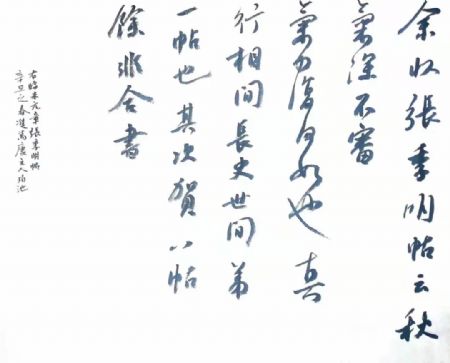 余收張季明帖云秋
氣深不審
氣力復何如也 真
行相間長史世間弟
一帖也其次賀八帖
餘非合書
右臨米元章張季明帖
辛丑之春主人